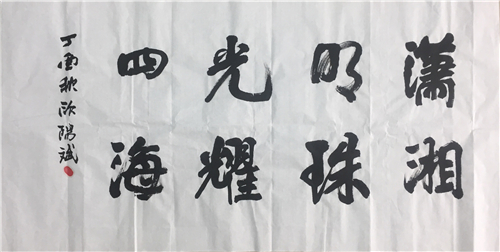 潇湘
明珠
光耀
四海
丁酉秋欧阳斌